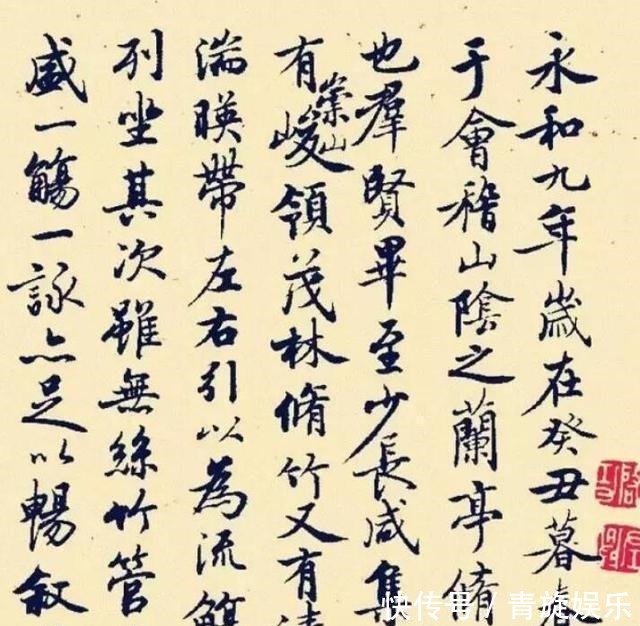 永和九年歲在癸丑暮
于會稽山陰之蘭亭脩
也羣賢畢至少長咸集
有崇山峻領茂林脩竹又有清
湍暎帶左右引以為流觴
列坐其次雖無絲竹管
盛一觴一詠亦足以暢叙
快传号 / 青旋娱乐